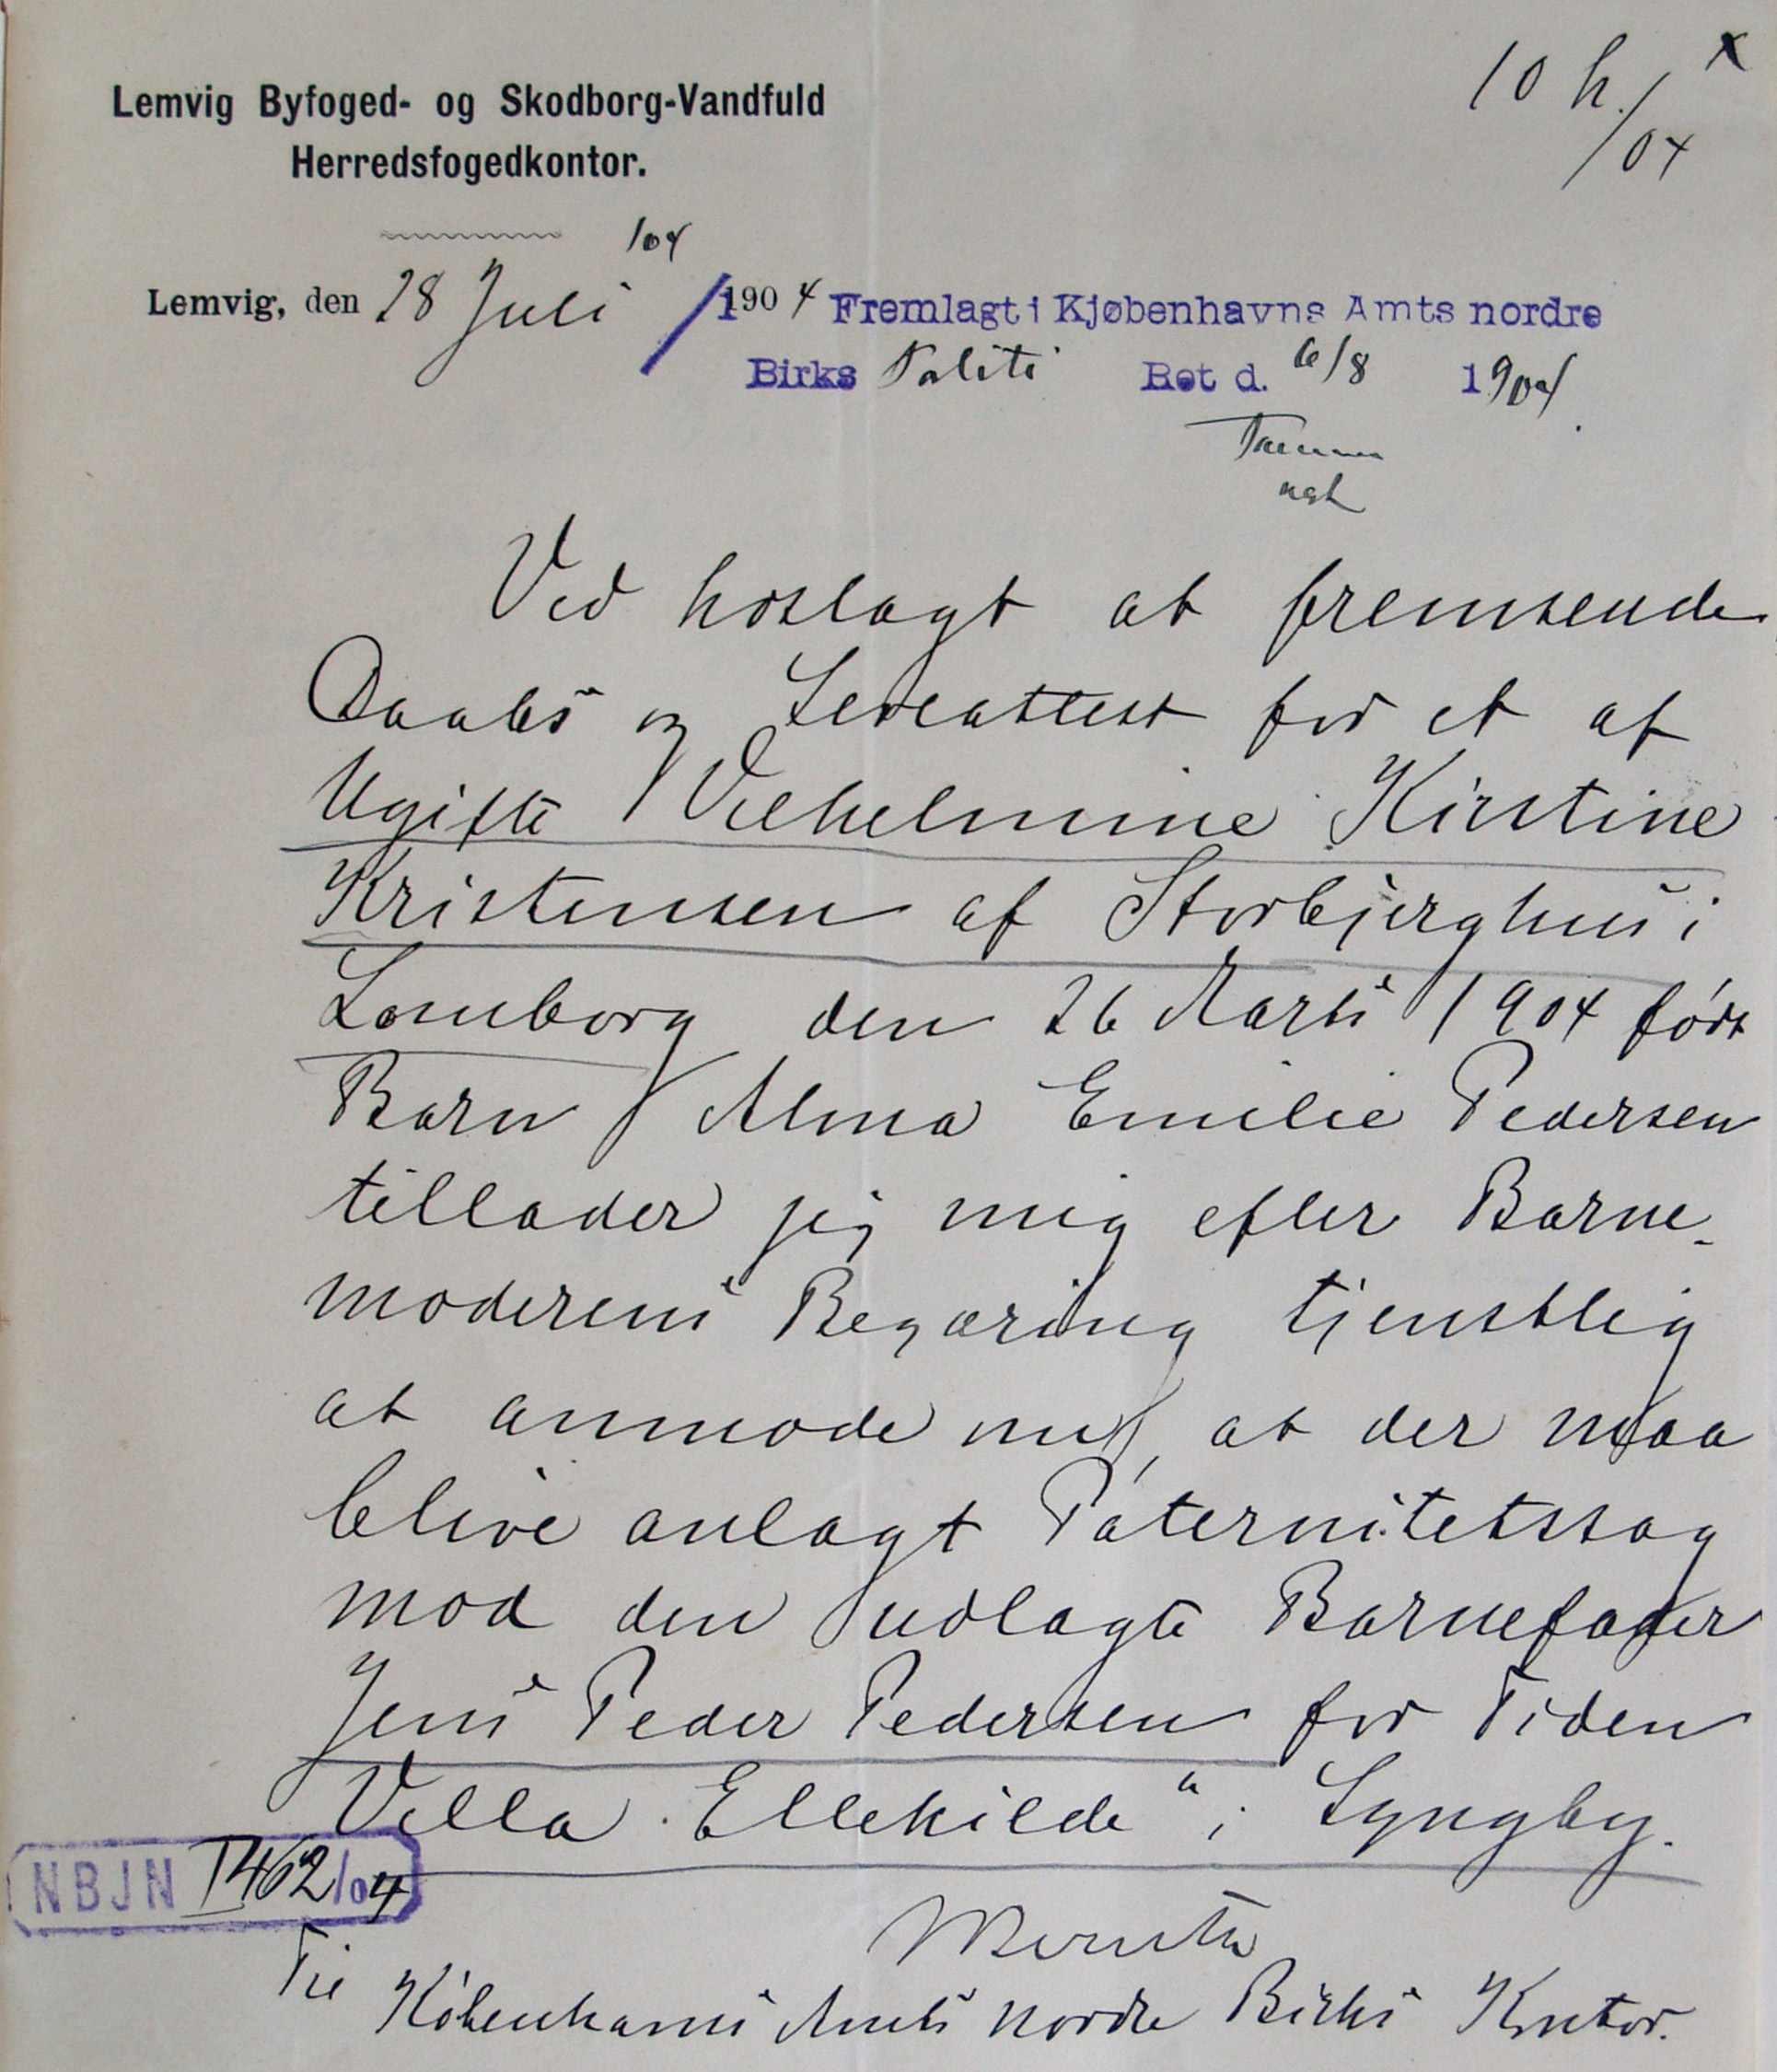 10 h. x
/04
Lemvig Byfoged- og Skodborg-Vandfuld
Herredsfogedkontor.
/04
Lemvig, den 28 Juli 1904 Fremlagt i Kjøbenhavns Amts nordre
Birks Politi Ret d. 6/8 1904.
Ved hoslagt at fremsende
Daabs og Leveattest for et af
Ugifte Vilhelmine Kirstine
Kristensen af Storbjerghus i
Lomborg den 26 Marts 1904 født
Barn Alma Emilie Pedersen
tillader jeg mig efter Barne-
moderens Begæring tjenstlig
at anmode om, at der maa
blive anlagt Paternitetssag
mod den udlagte Barnefader
Jens Peder Pedersen for Tiden
Villa Ellekilde" i Lyngby.
NBJN I 462/04
Til
Københavns Amts nordre Birks Kontor.